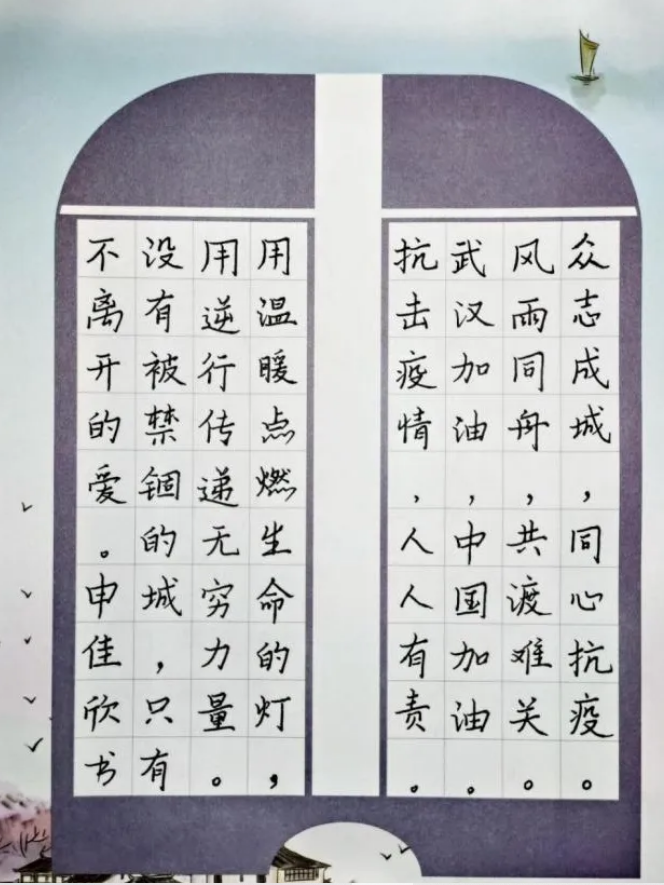 众志成城，同心抗疫。
风雨同舟，共渡难关。
武汉加油，中国加油。
抗击疫情，人人有责。
用温暖点燃生命的灯，
用逆行传递无穷力量。
没有被禁锢的城，只有
不离开的爱。申佳欣书